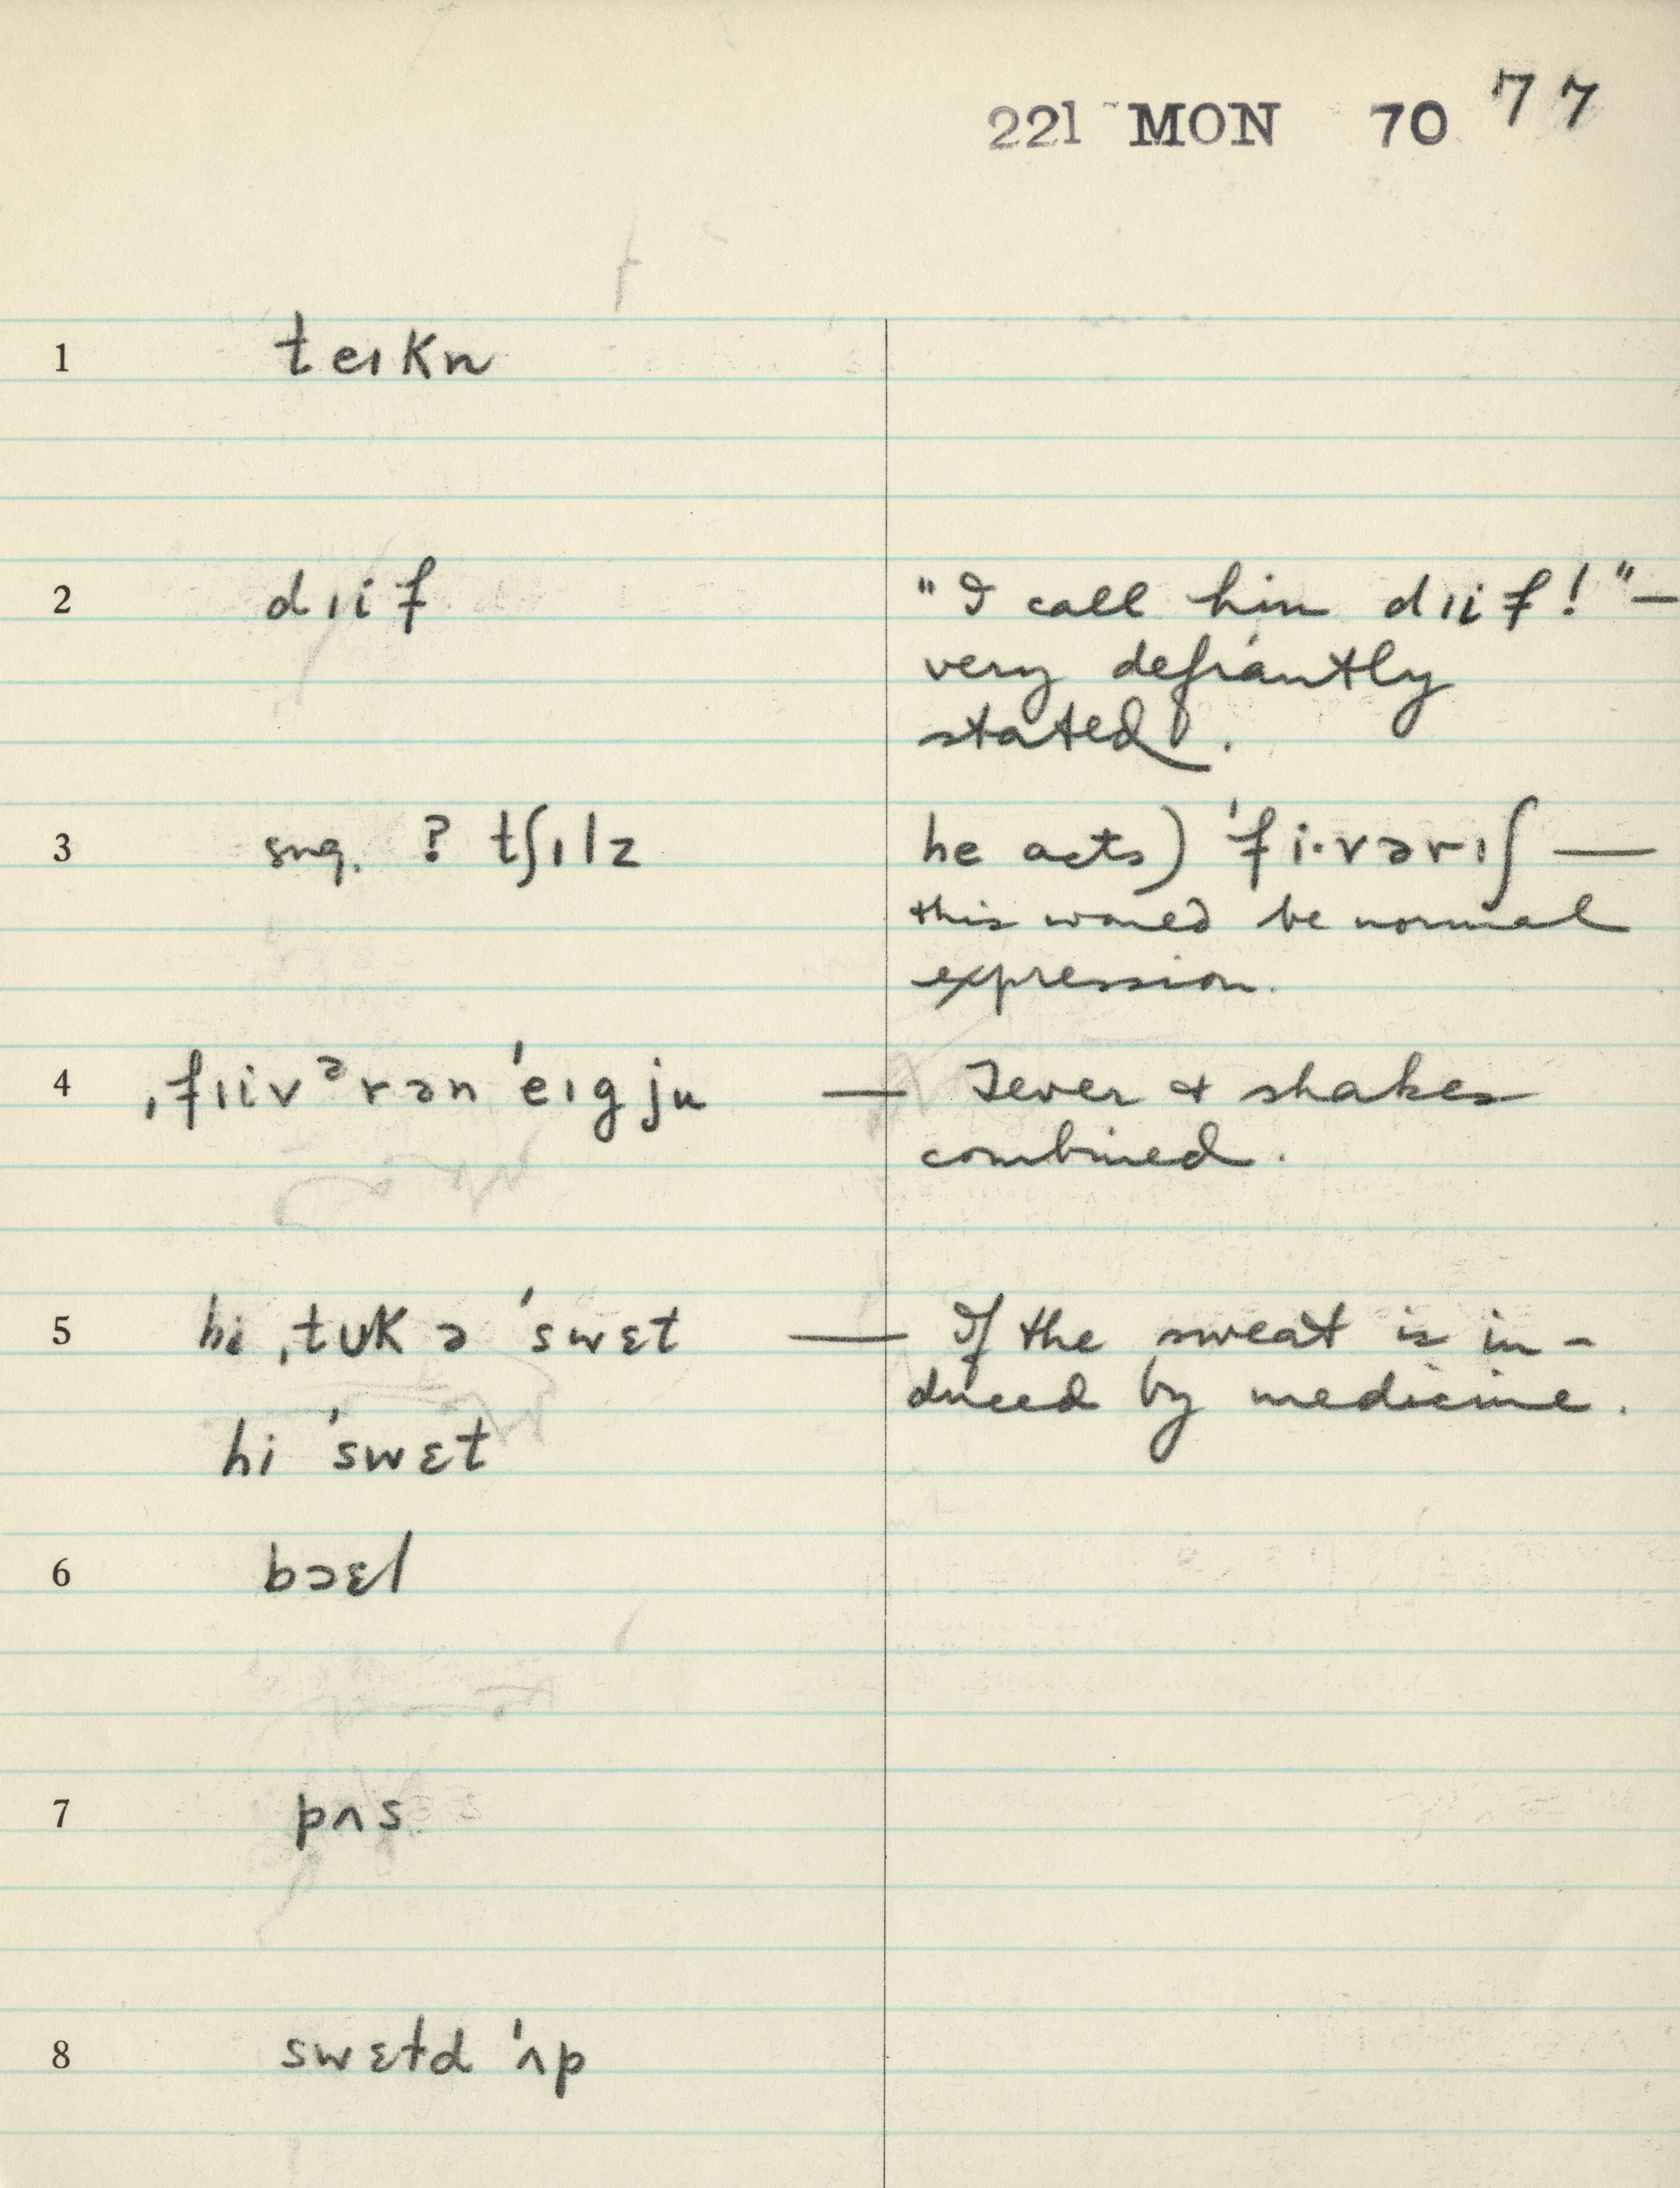 221 MON 70 77
1 teɪkn
2 dɪif "I call him dɪif!" —
very defiantly
stated.
3 sug. ? tʃɪlz he acts) 'fi·vərɪʃ —
this would be normal
expression.
4 ˌfɪivᵊrən 'eɪgju — Fever & shakes
combined.
5 hi ˌtʊk ə 'swɛt — If the sweat is in-
duced by medicine.
hi 'swɛt
6 bɔɛl
7 pʌs
8 swɛtd 'ʌp